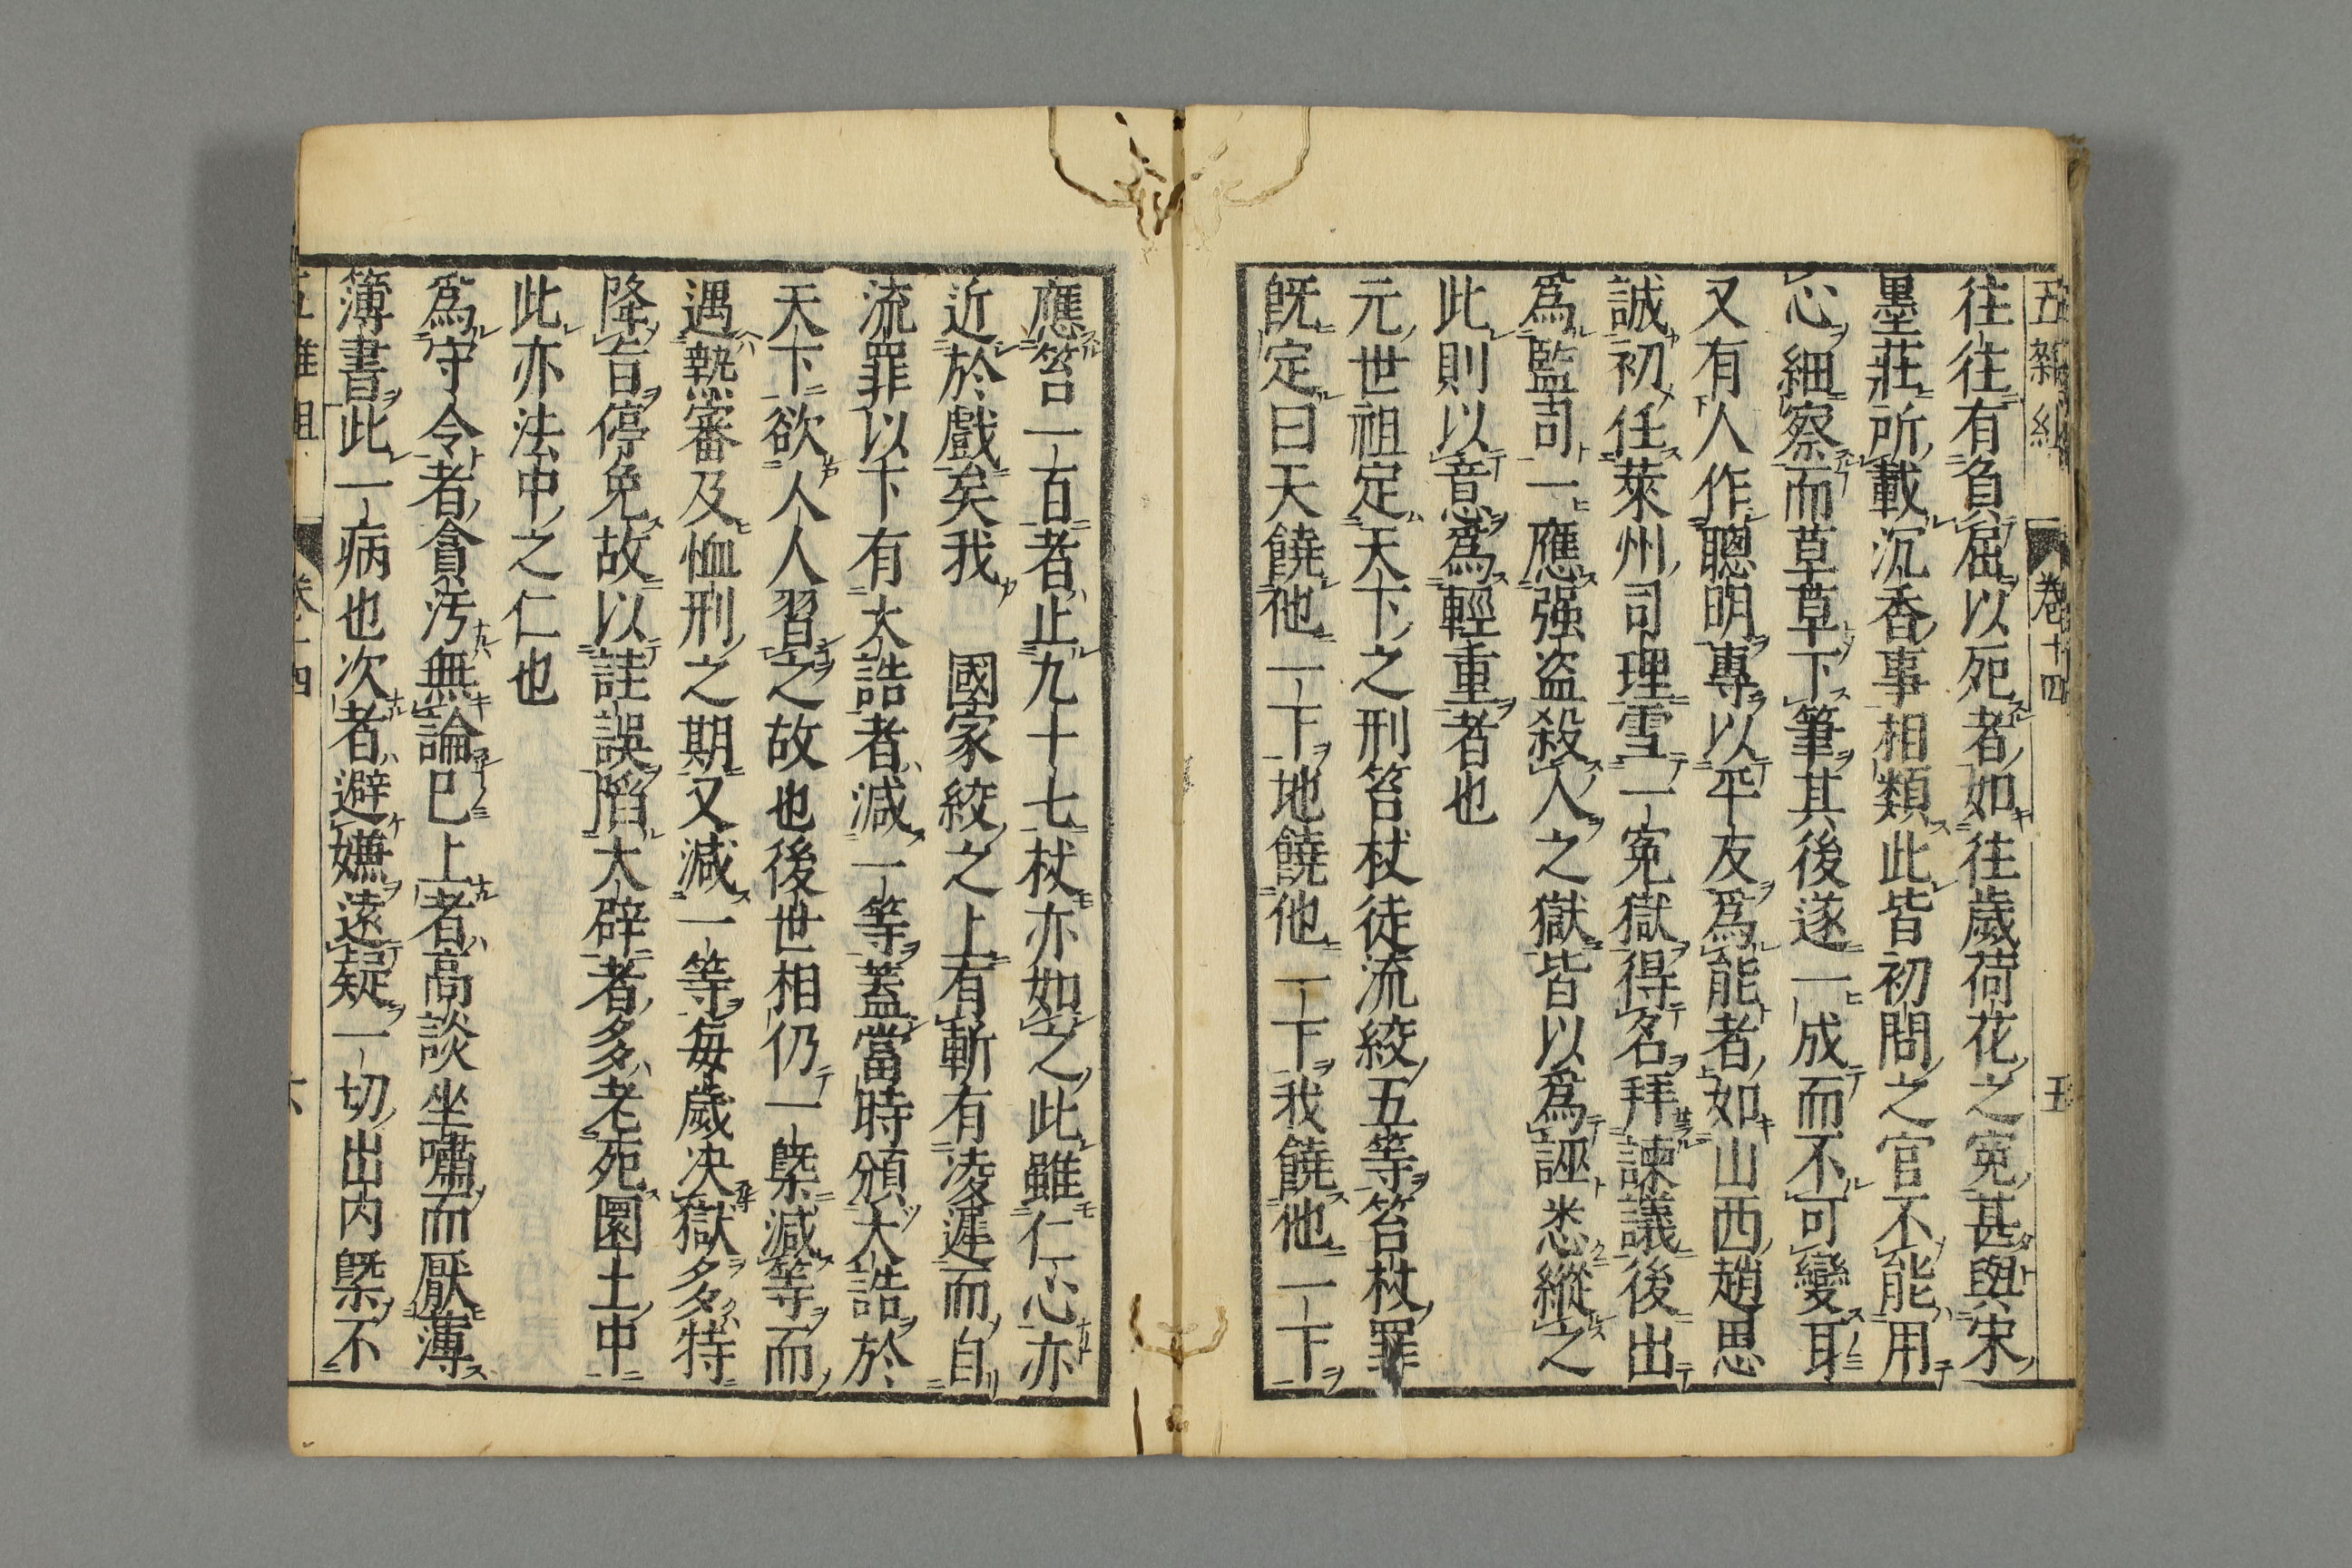 五雜組 卷十四 五
往往有負屈以死者如往歲荷花之寃甚與宋
墨莊所載沉香事相類此皆初問之官不能用
心細察而草草下筆其後遂一成而不可變耳
又有人作聰明專以平反爲能者如山西趙思
誠初任萊州司理雪一寃獄得名拜諫議後出
爲監司一應强盗殺人之獄皆以爲誣悉縱之
此則以意爲輕重者也
元世祖定天下之刑笞杖徒流絞五等笞杖罪
旣定曰天饒他一下地饒他一下我饒他一下
應笞一百者止九十七杖亦如之此雖仁心亦
近於戲矣我 國家絞之上有斬有凌遲而自
流罪以下有大誥者減一等蓋當時頒大誥於
天下欲人人習之故也後世相仍一槩減等而
遇熱審及恤刑之期又減一等每歲决獄多特
降旨停免故以詿誤陷大辟者多老死圜土中
此亦法中之仁也
爲守令者貪汚無論巳上者高談坐嘯而厭薄
簿書此一病也次者避嫌遠疑一切出内槩不
卷十四 六